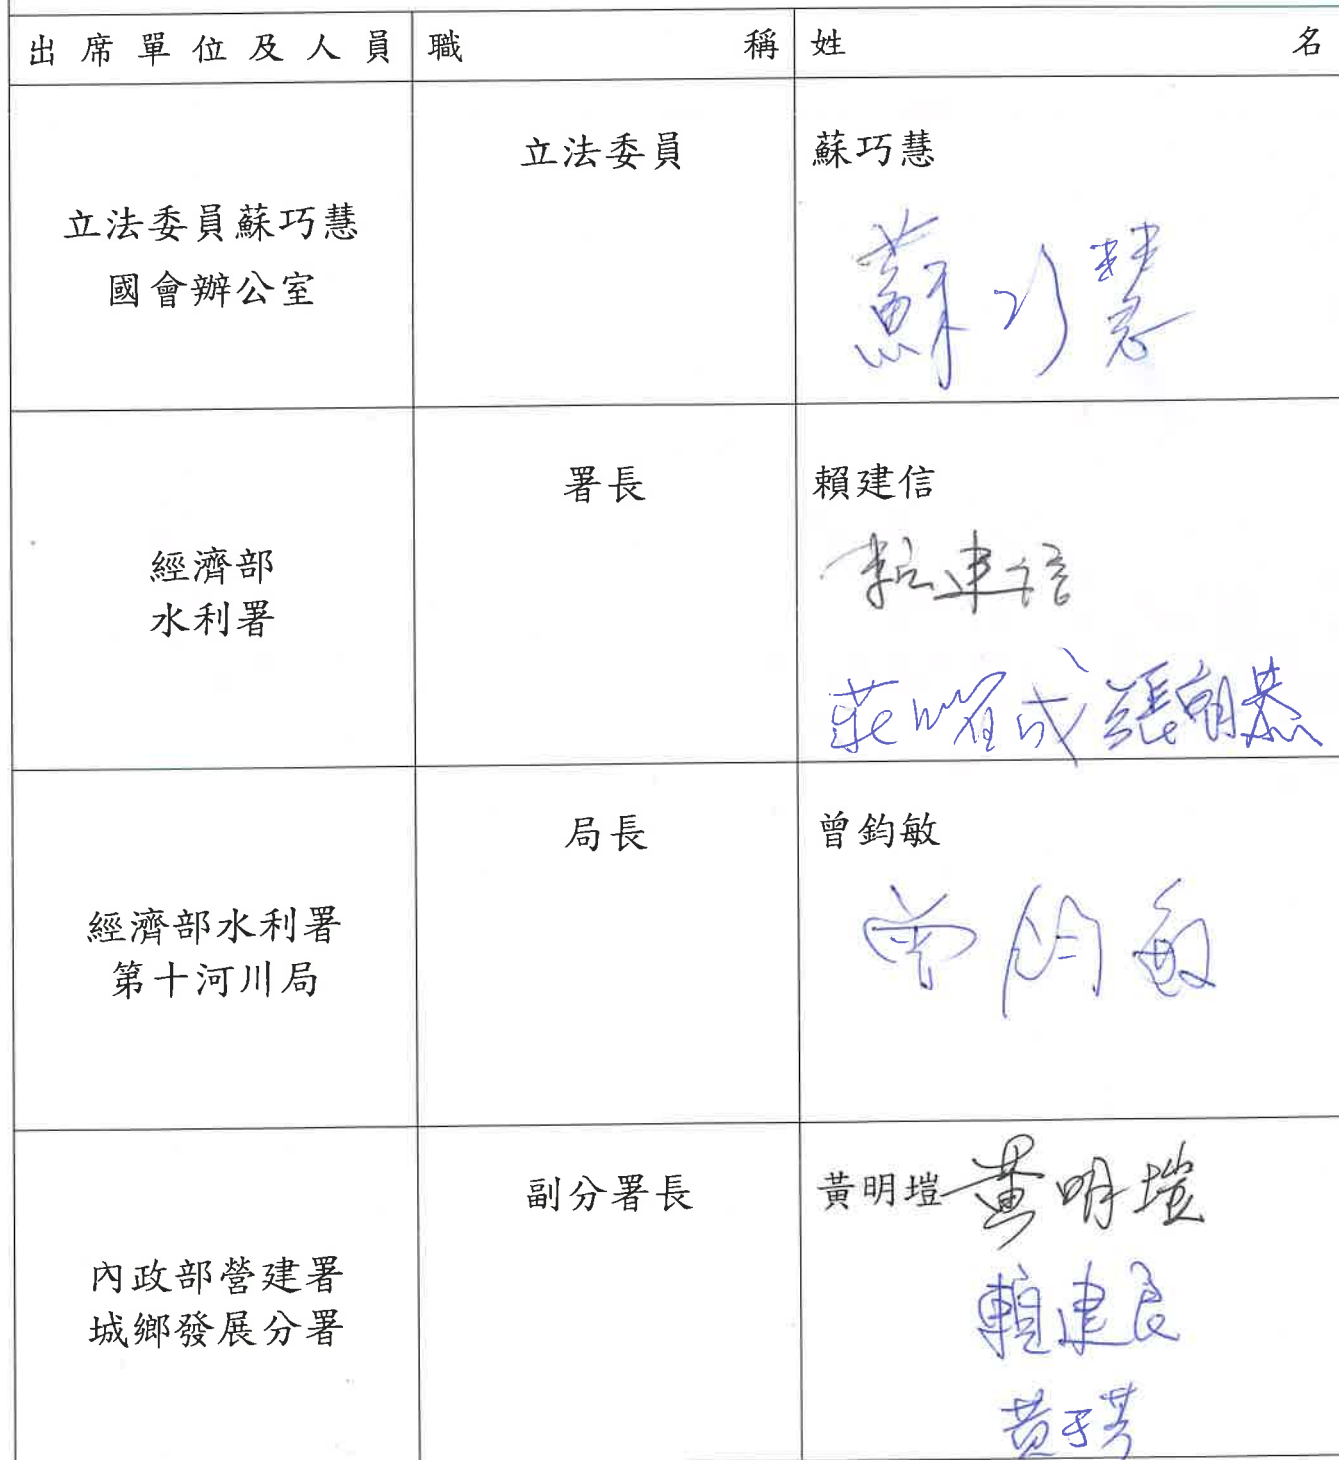 出席單位及人員 職稱 姓名
立法委員蘇巧慧
國會辦公室
立法委員
蘇巧慧
蘇巧慧
經濟部
水利署
署長
賴建信
賴建信
莊曜成 張朝恭
經濟部水利署
第十河川局
局長
曾鈞敏
曾鈞敏
內政部營建署
城鄉發展分署
副分署長
黃明塏 黃明塏
賴建良
黃于芳